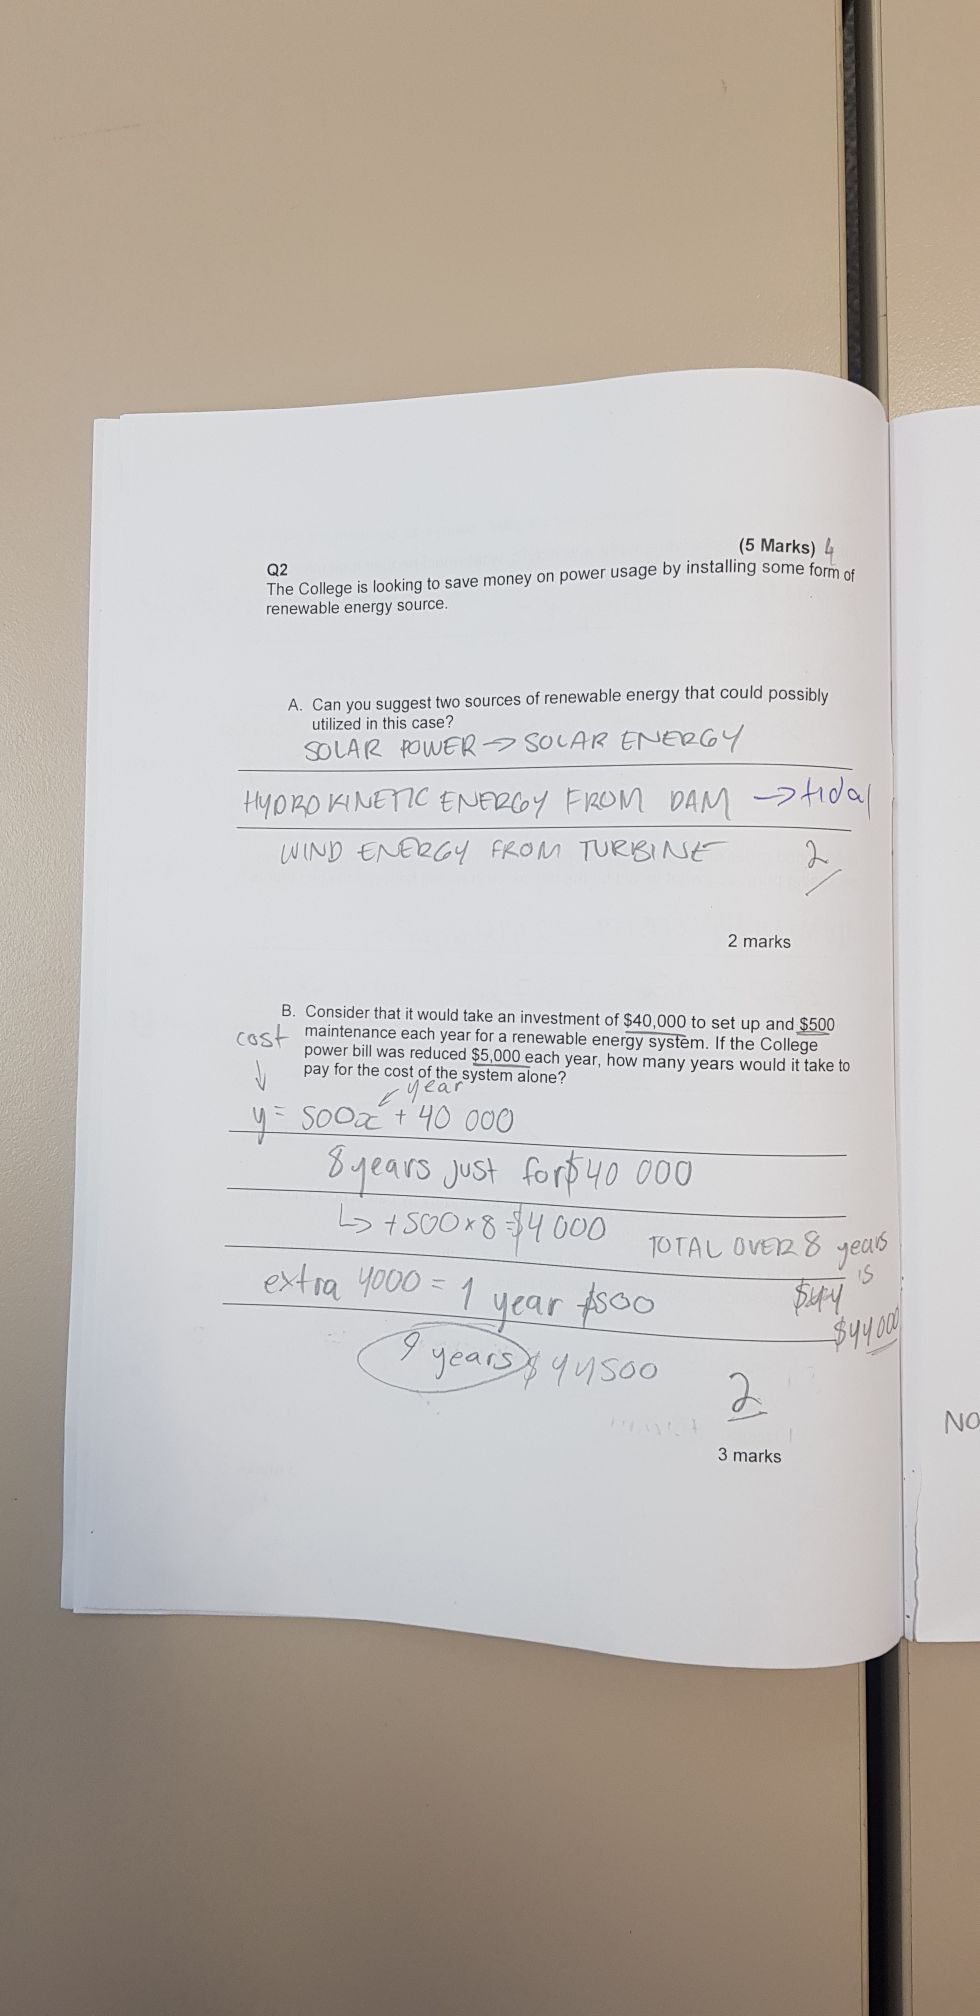 (5 Marks) 4
Q2
The College is looking to save money on power usage by installing some form of
renewable energy source.
A. Can you suggest two sources of renewable energy that could possibly
utilized in this case?
SOLAR POWER → SOLAR ENERGY
HYDRO KINETIC ENERGY FROM DAM → tidal
WIND ENERGY FROM TURBINE 2
2 marks
B. Consider that it would take an investment of $40,000 to set up and $500
cost maintenance each year for a renewable energy system. If the College
power bill was reduced $5,000 each year, how many years would it take to
pay for the cost of the system alone?
year
y = 500x + 40 000
8 years just for $40 000
↳ +500×8=$4000 TOTAL OVER 8 years
is
extra 4000 = 1 year $500
$44000
9 years $44500
2
3 marks
NO